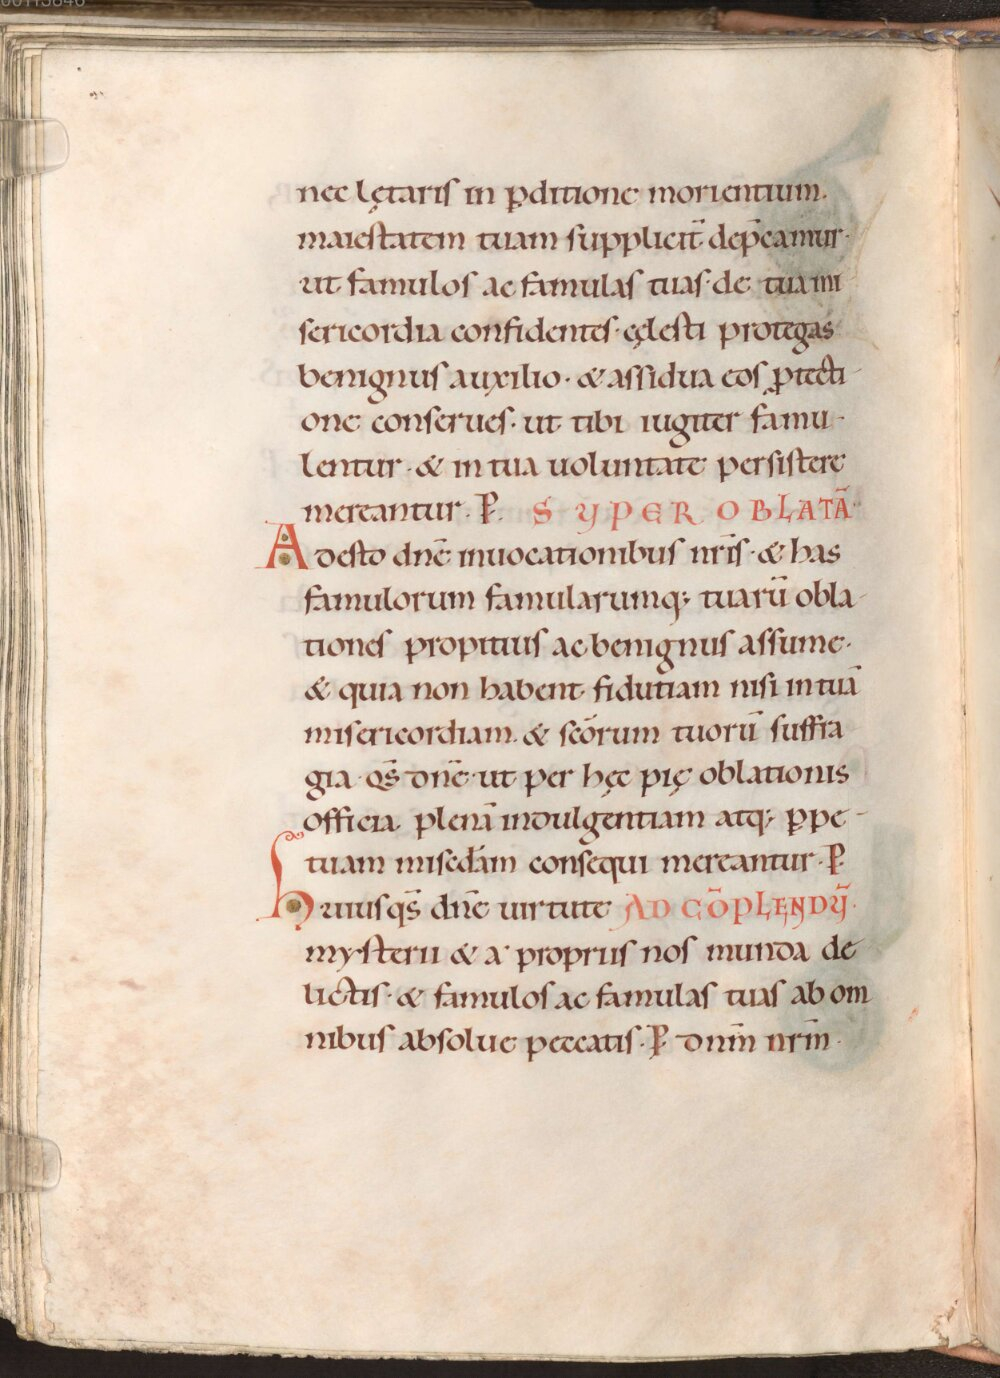 00113846
nec lętaris in ꝑditione morientium.
maiestatem tuam suppliciť dep̄camur·
ut famulos ac famulas tuas· de tua mi
sericordia confidentes· cęlesti protegas
benignus auxilio· & assidua eos ꝓtecti
one conserues· ut tibi iugiter famu-
lentur· & in tua uoluntate persistere
mereantur. P. SVPER OBLATĀ
Adesto dn̄e inuocationibus nr̄is· & has
famulorum famularumq; tuarū obla
tiones propitius ac benignus assume·
& quia non habent fidutiam nisi in tuā
misericordiam. & sc̄orum tuorū suffra
gia· qs̄ dn̄e· ut per hęc pię oblationis
officia. plenā indulgentiam atq; ꝑpe-
tuam misc̄dam consequi mereantur· P
huius qs̄ dn̄e uirtute AD CŌPLENDV̄·
mysterii & a' propriis nos munda de
lictis· & famulos ac famulas tuas ab om
nibus absolue peccatis. P dnm̄ nrm̄·